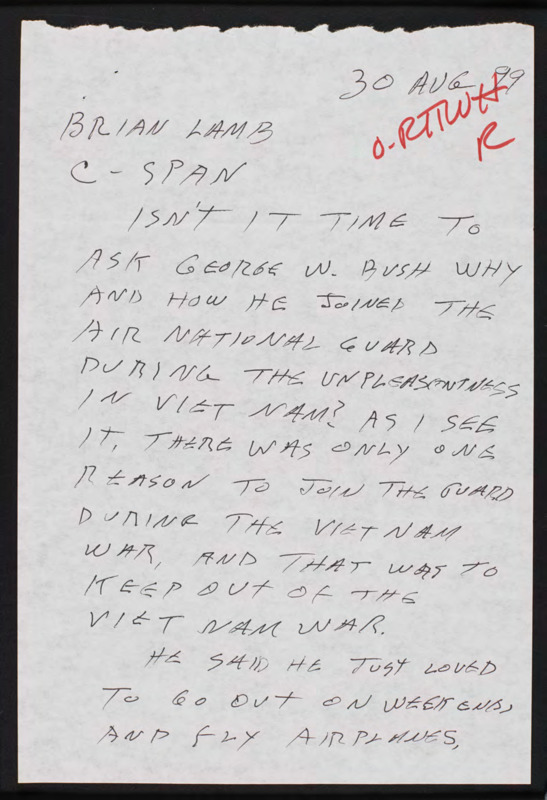 30 AUG 99
O-RTTWH
R
BRIAN LAMB
C-SPAN
ISN'T IT TIME TO
ASK GEORGE W. BUSH WHY
AND HOW HE JOINED THE
AIR NATIONAL GUARD
DURING THE UNPLEASENTNESS
IN VIET NAM? AS I SEE
IT, THERE WAS ONLY ONE
REASON TO JOIN THE GUARD
DURING THE VIET NAM
WAR, AND THAT WAS TO
KEEP OUT OF THE
VIET NAM WAR.
HE SAID HE JUST LOVED
TO GO OUT ON WEEKENDS,
AND FLY AIRPLANES,